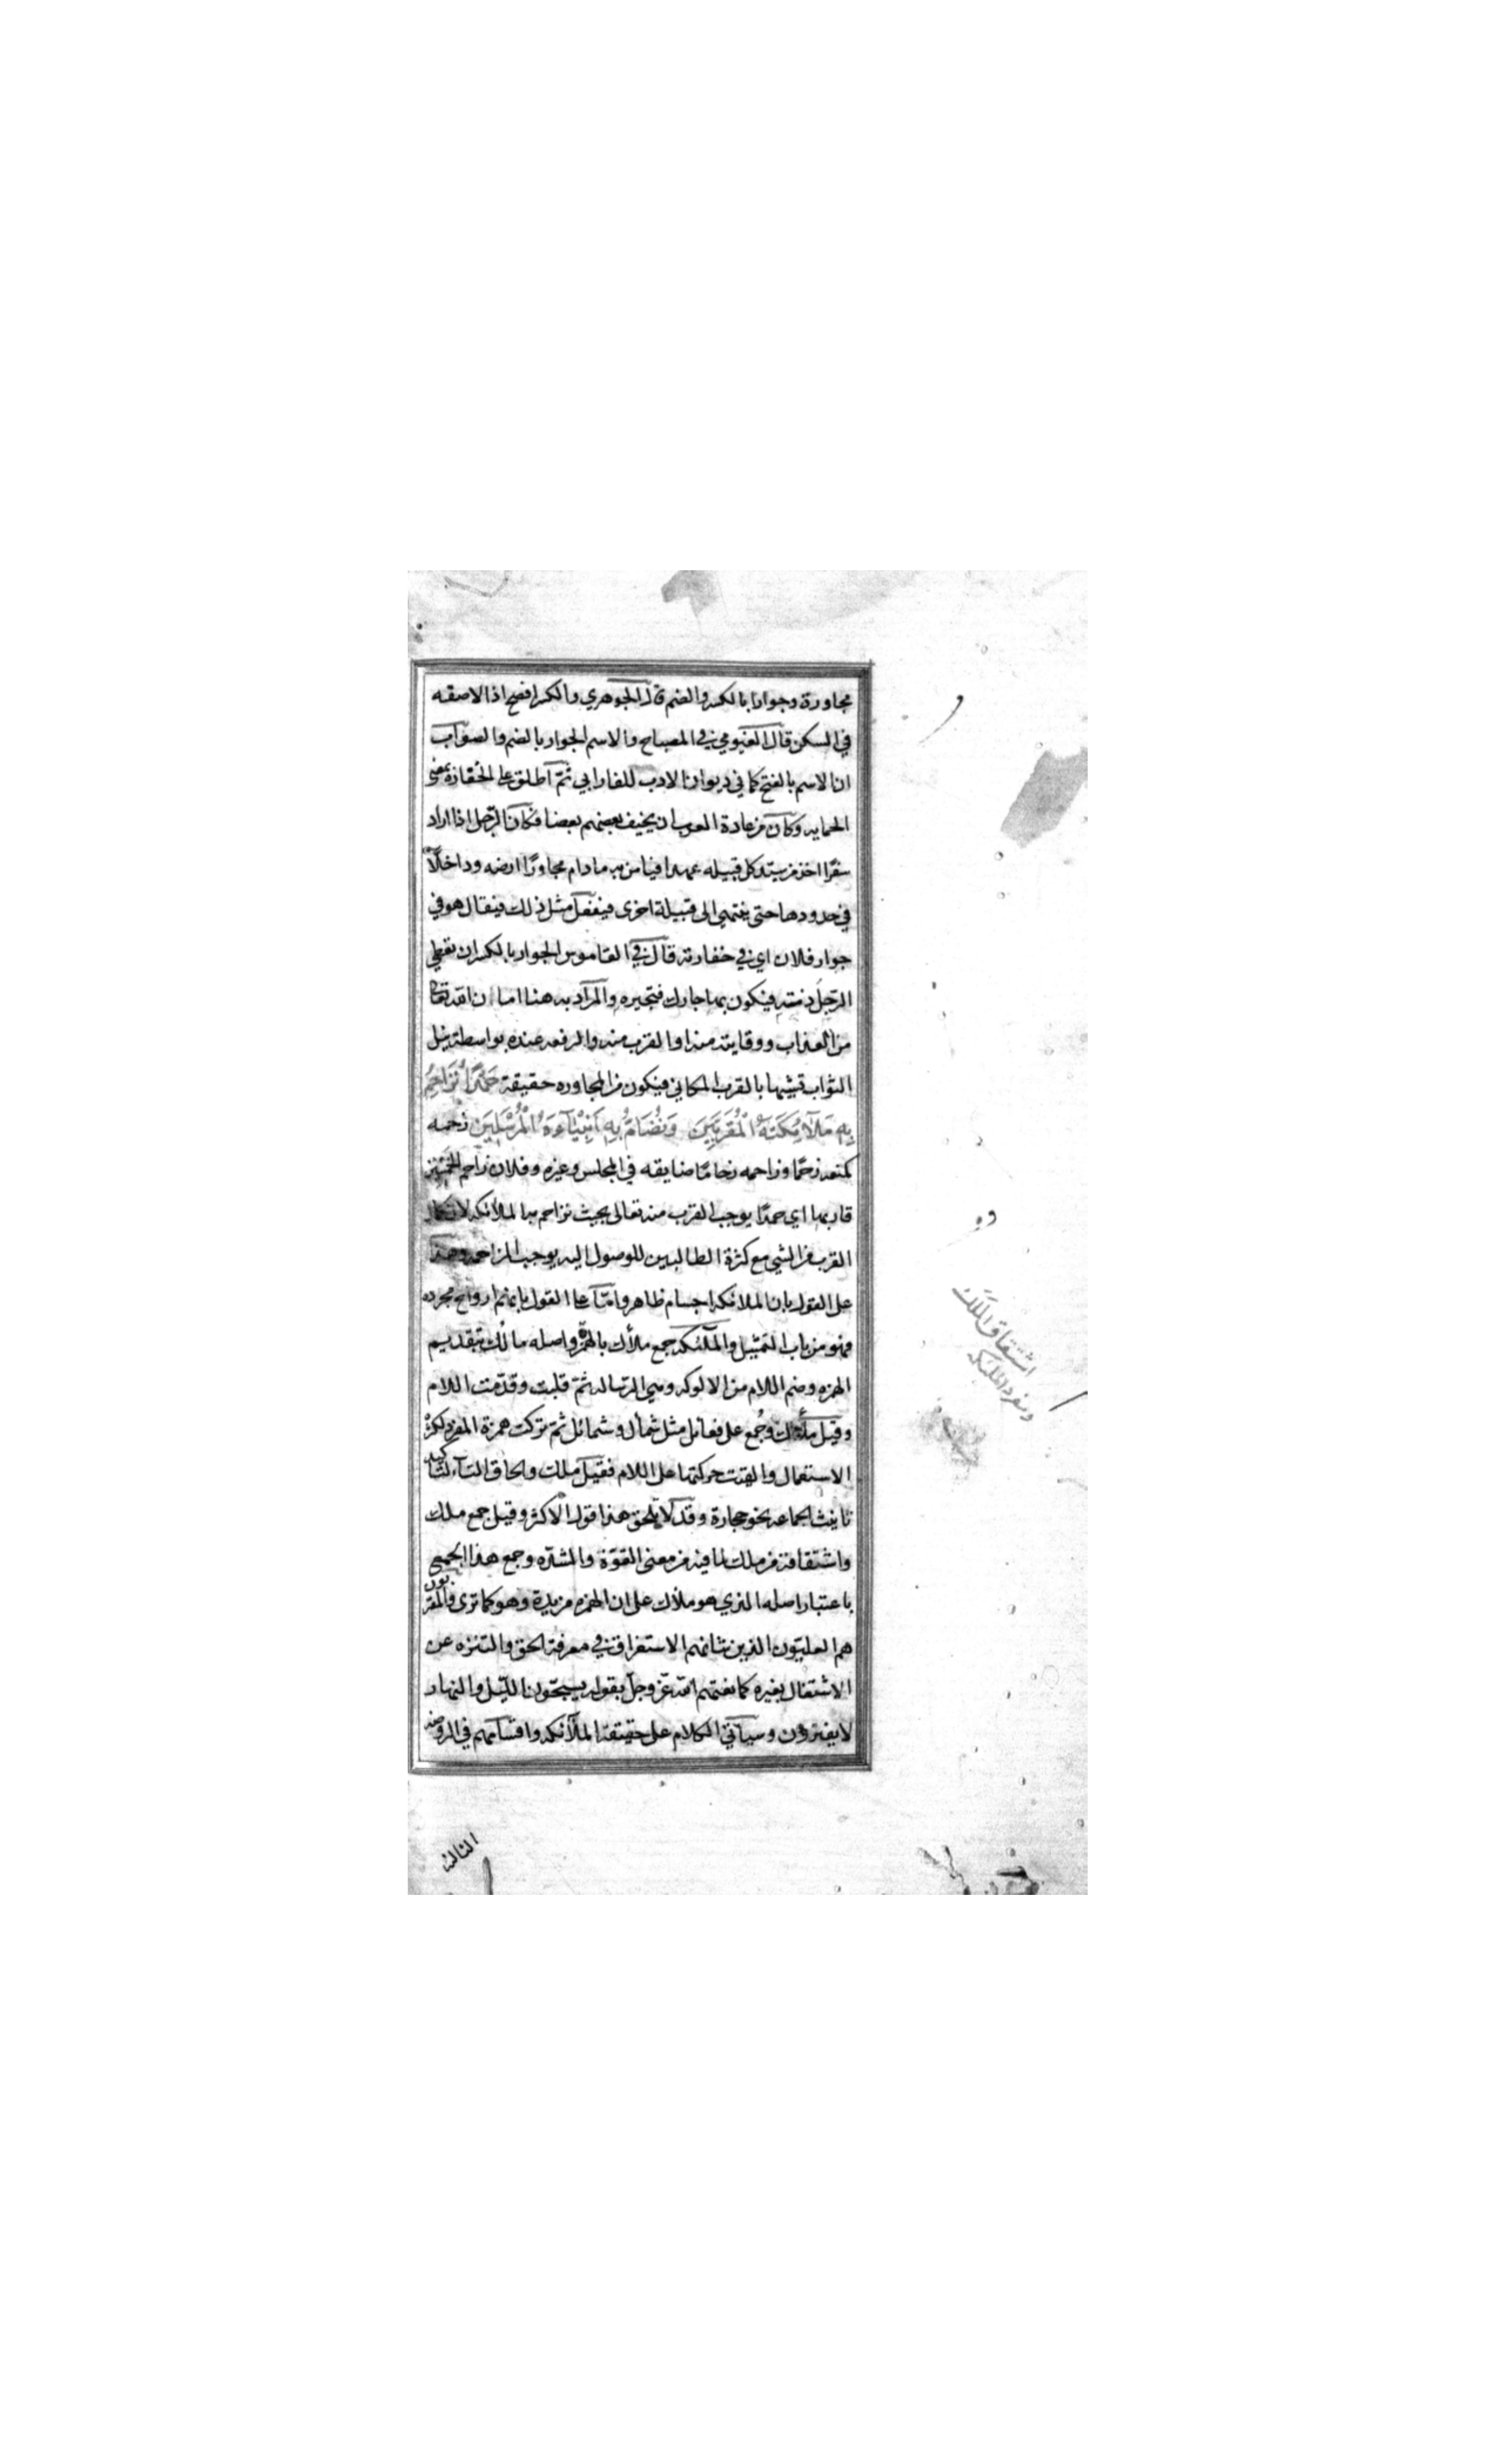 مجاورة وجوارا بالكسر والضم قال الجوهري والكسر افصح اذا لاصقه
في السكن قال الفيومي في المصباح والاسم الجوار بالضم والصواب
ان الاسم بالفتح كما في ديوان الادب للفارابي ثم اطلق على الخفارة بمعنى
الحمايه وكان من عادة العرب ان يخيف بعضهم بعضا فكان الرجل اذا اراد
سفرا اخذ من سيد كل قبيله عهدا فيامن به ما دام مجاورًا ارضه وداخلًا
في حدودها حتى ينتهي الى قبيلة اخرى فيفعل مثل ذلك فيقال هو في
جوار فلان اي في خفارته قال في القاموس الجوار بالكسر ان تعطي
الرجل ذمته فيكون بها جارك فتجيره والمراد به هنا امان الله تعالى
من العذاب ووقايته منه او القرب منه والرفعه عنده بواسطة نيل
الثواب تشبيها بالقرب المكاني فيكون من المجاوره حقيقة حَمْدًا نُزَاحِمُ
بِهِ مَلَآئِكَتَهُ الْمُقَرَّبِينَ وَنُضَامُّ بِهِ اَنْبِيَآءَهُ الْمُرْسَلِينَ زحمه
كمنعه زحمًا وزاحمه زحامًا ضايقه في المجلس وغيره وفلان زاحم الخمسين
قاربها اي حمدًا يوجب القرب منه تعالى بحيث نزاحم به الملائكه لان كمال
القرب من الشي مع كثرة الطالبين للوصول اليه يوجب المزاحمه وهذا
على القول بان الملائكه اجسام ظاهر وامّا على القول بانهم ارواح مجرده
فهو من باب التمثيل والملائكه جمع ملأك بالهمزة واصله مالك بتقديم
الهمزه وضم اللام من الالوكه وهي الرساله ثمّ قلبت وقدّمت اللام
وقيل ملأك وجُمع على فعائل مثل شمأل وشمائل ثم تركت همزة المفرد لكثرة
الاستعمال والقيت حركتها على اللام فقيل ملك والحاق التاء لتاكيد
تانيث الجماعه نحو حجارة وقد لا تلحق هذا قول الاكثر وقيل جمع ملك
واشتقاقه من ملك لما فيه من معنى القوّة والشدّه وجمع هذا الجمع
باعتبار اصله الذي هو ملأك على ان الهمزه مزيدة وهو كما ترى والمقربون
هم العليّون الذين شانهم الاستغراق في معرفة الحق والتنزه عن
الاشتغال بغيره كما نعتهم الله عزّ وجلّ بقوله يسبحّون الليل والنهار
لا يفترون وسياتي الكلام على حقيقة الملائكه واقسامهم في الروضه
اشتقاق الملك
ومفرد الملئكه
الثالثه